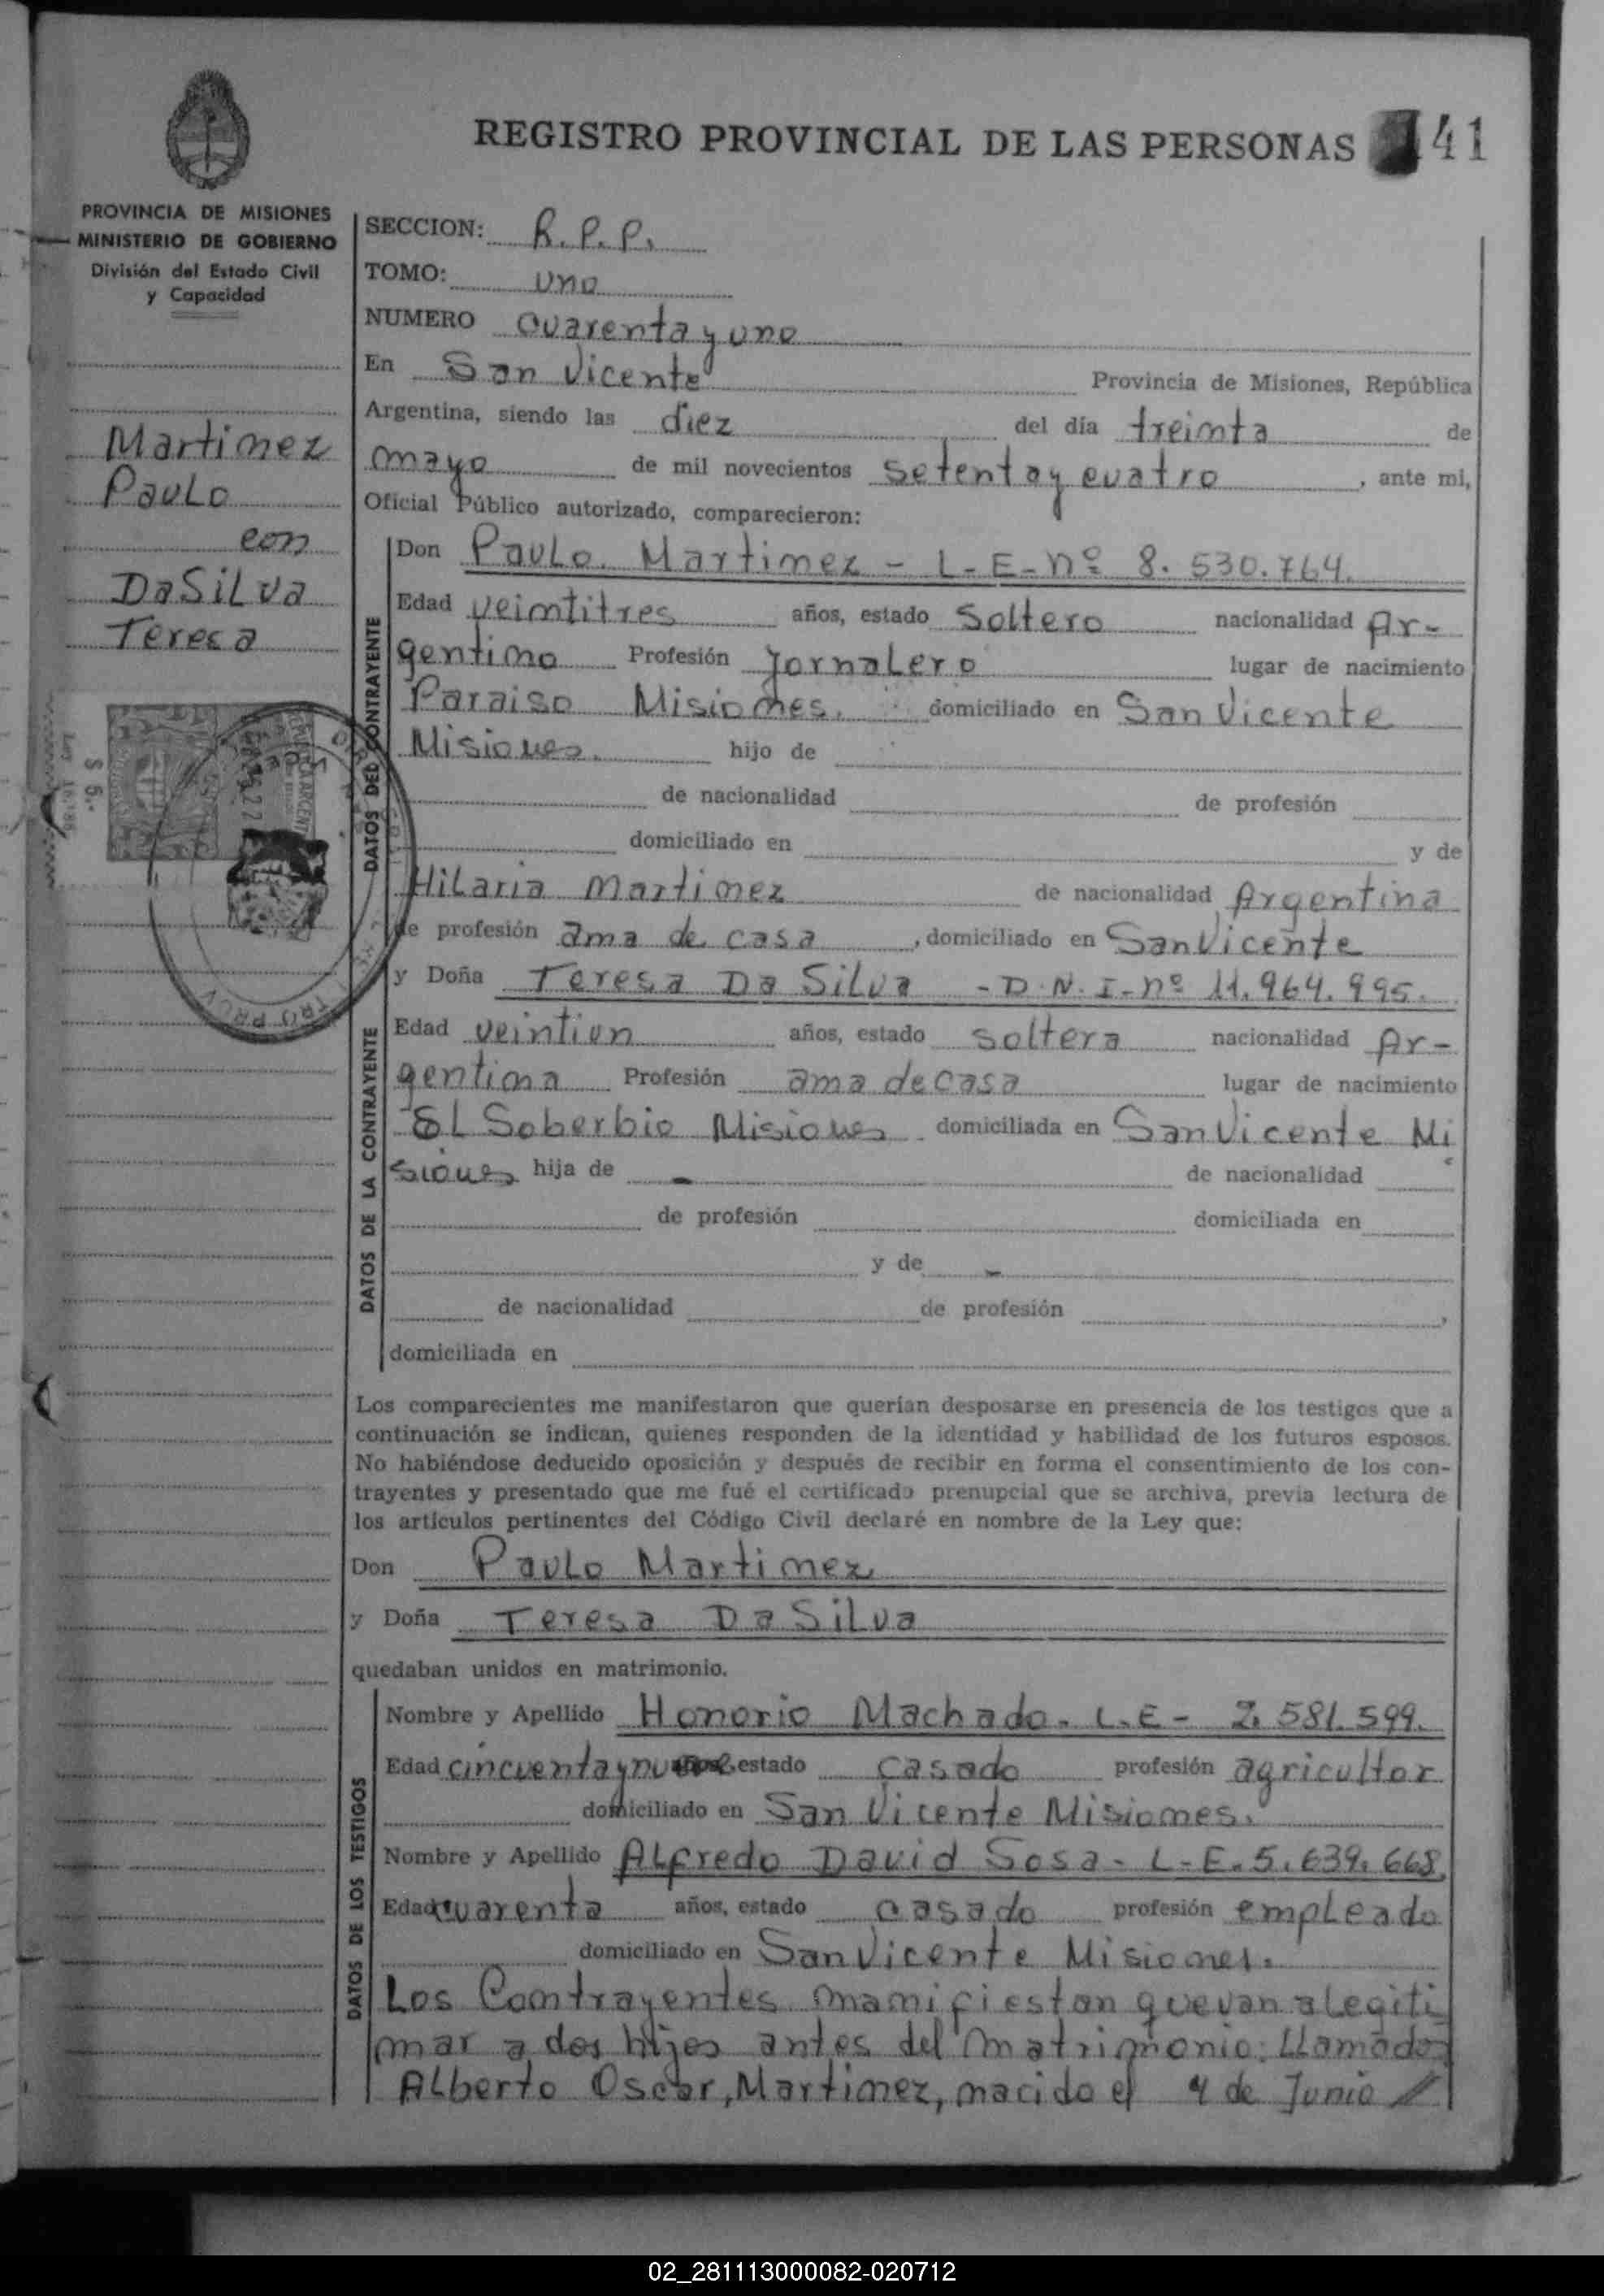 REGISTRO PROVINCIAL DE LAS PERSONAS 41
PROVINCIA DE MISIONES
MINISTERIO DE GOBIERNO
División del Estado Civil
y Capacidad
Martinez
Paulo
con
DaSilva
Teresa
$ 5.-
SECCION: R.P.P.
TOMO: uno
NUMERO cuarenta y uno
En San Vicente Provincia de Misiones, República
Argentina, siendo las diez del día treinta de
mayo de mil novecientos setenta y cuatro, ante mi,
Oficial Público autorizado, comparecieron:
DATOS DEL CONTRAYENTE
Don Paulo Martinez - L-E-nº 8.530.764.
Edad veintitres años, estado soltero nacionalidad Ar-
gentino Profesión Jornalero lugar de nacimiento
Paraiso Misiones. domiciliado en San Vicente
Misiones. hijo de
de nacionalidad de profesión
domiciliado en y de
Hilaria Martinez de nacionalidad Argentina
de profesión ama de casa, domiciliado en San Vicente
y Doña Teresa Da Silva - D.N.I-nº 11.964.995.
DATOS DE LA CONTRAYENTE
Edad veintiun años, estado soltera nacionalidad Ar-
gentina Profesión ama de casa lugar de nacimiento
El Soberbio Misiones. domiciliada en San Vicente Mi
siones hija de - de nacionalidad
de profesión domiciliada en
y de -
de nacionalidad de profesión ,
domiciliada en
Los comparecientes me manifestaron que querían desposarse en presencia de los testigos que a
continuación se indican, quienes responden de la identidad y habilidad de los futuros esposos.
No habiéndose deducido oposición y después de recibir en forma el consentimiento de los con-
trayentes y presentado que me fué el certificado prenupcial que se archiva, previa lectura de
los artículos pertinentes del Código Civil declaré en nombre de la Ley que:
Don Paulo Martinez
y Doña Teresa Da Silva
quedaban unidos en matrimonio.
DATOS DE LOS TESTIGOS
Nombre y Apellido Honorio Machado. L.E- 2.581.599.
Edad cincuenta y nueve estado casado profesión agricultor
domiciliado en San Vicente Misiones.
Nombre y Apellido Alfredo David Sosa - L-E.5.639.668.
Edad cuarenta años, estado casado profesión empleado
domiciliado en San Vicente Misiones.
Los Contrayentes manifiestan que van a legiti
mar a dos hijos antes del matrimonio: Llamados
Alberto Oscar, Martinez, nacido el 4 de Junio
02_281113000082-020712